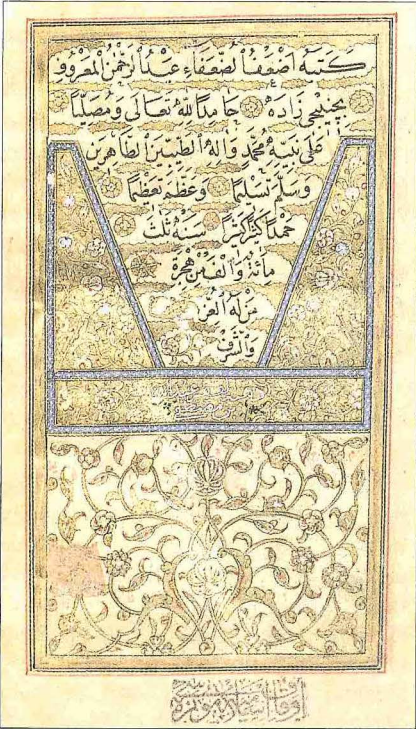 كتبه اضعف الضعفاء عبد الرحمن المعروف
بچنيجي زاده حامدا لله تعالى ومصليا
على نبيه محمد واله الطيبين الطاهرين
وسلم تسليما وعظم تعظيما
حمدا كثيرا كثيرا سنة ثلث
مائة والف من هجرة
من له العز
والشرف
اوقاف اسلاميه موزه سى